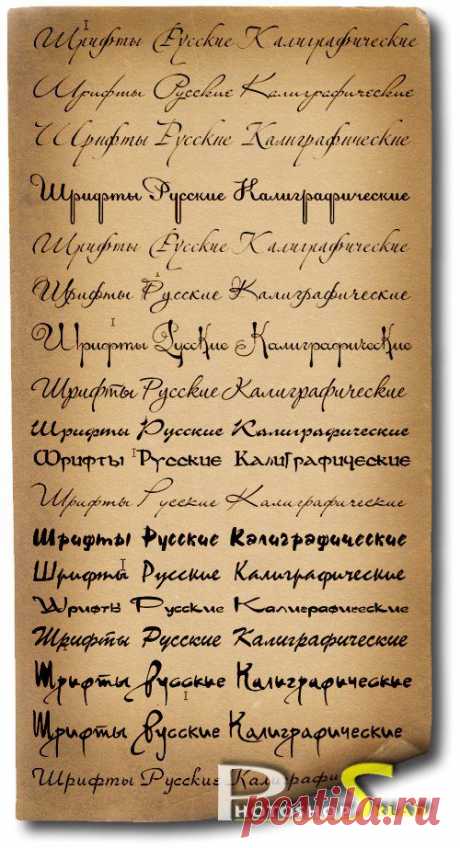 Шрифты Русские Калиграфические
Шрифты Русские Калиграфические
Шрифты Русские Калиграфические
Шрифты Русские Калиграфические
Шрифты Русские Калиграфические
Шрифты Русские Калиграфические
Шрифты Русские Калиграфические
Шрифты Русские Калиграфические
Шрифты Русские Калиграфические
Шрифты Русские Калиграфические
Шрифты Русские Калиграфические
Шрифты Русские Калиграфические
Шрифты Русские Калиграфические
Шрифты Русские Калиграфические
Шрифты Русские Калиграфические
Шрифты Русские Калиграфические
Шрифты Русские Калиграфические
Шрифты Русские Калиграфи
postila.ru